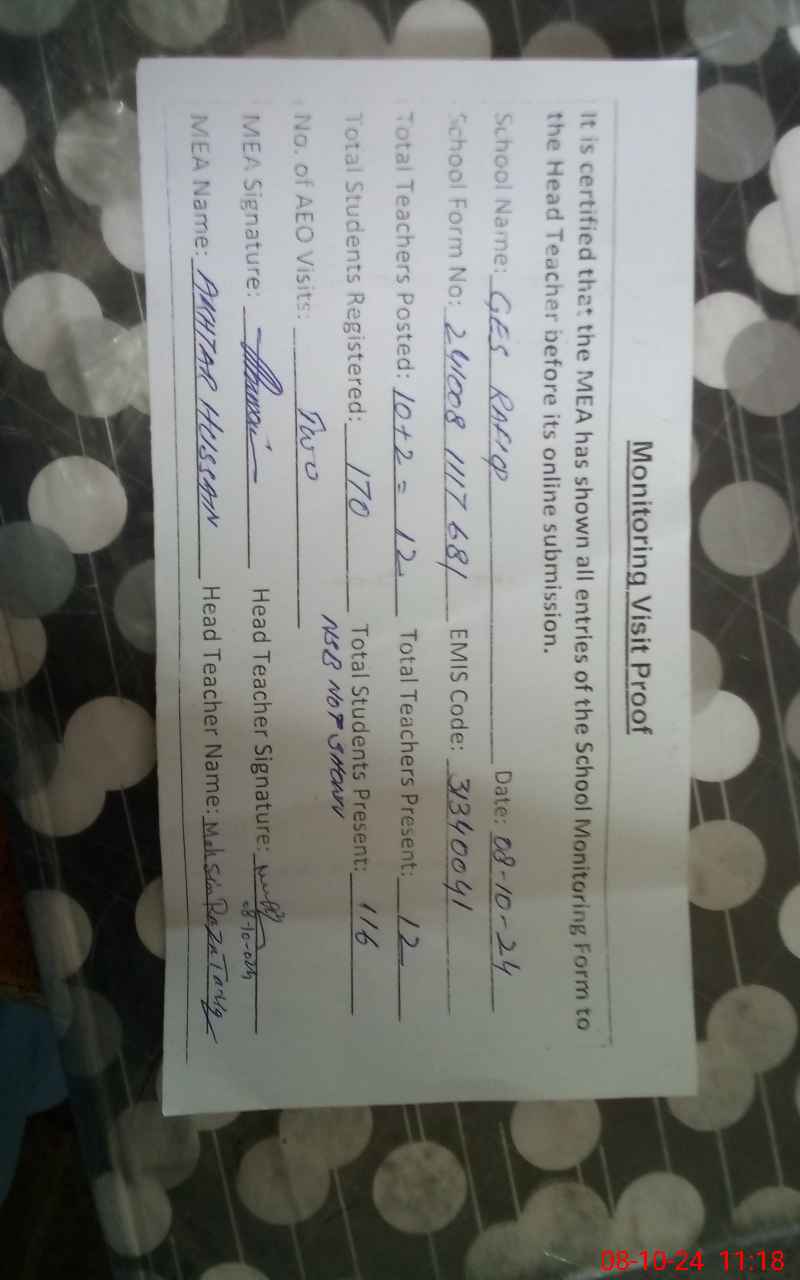 Monitoring Visit Proof
It is certified that the MEA has shown all entries of the School Monitoring Form to
the Head Teacher before its online submission.
School Name: GES RAFIQ Date: 08-10-24
School Form No: 241008 1117 681 EMIS Code: 31340041
Total Teachers Posted: 10+2 = 12 Total Teachers Present: 12
Total Students Registered: 170 Total Students Present: 116
NSB NOT SHOWN
No. of AEO Visits: TWO
MEA Signature: Head Teacher Signature:
08-10-024
MEA Name: AKHTAR HUSSAN Head Teacher Name: Mohsin Raza Tariq
08-10-24 11:18